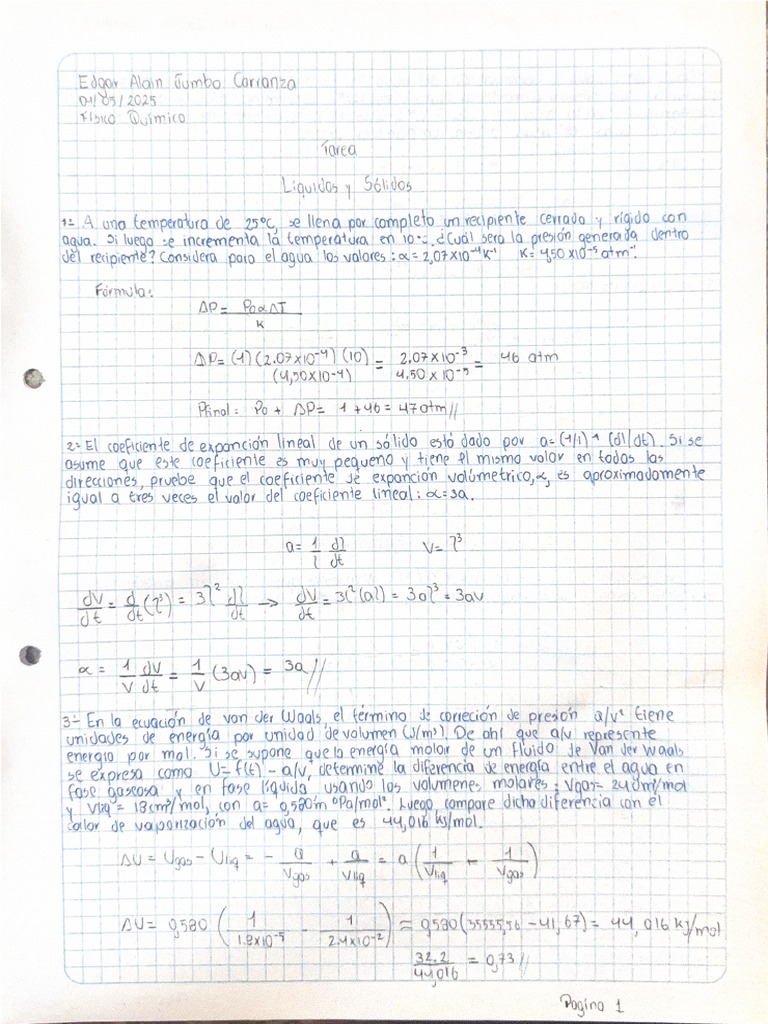 Edgar Alain Jumbo Carranza
01/05/2025
Físico Químico
Tarea
Liquidos y Sólidos
1=- A una temperatura de 25°C, se llena por completo un recipiente cerrado y rígido con
agua. Si luego se incrementa la temperatura en 10°C, ¿Cuál sera la presión generada dentro
del recipiente? Considera para el agua los valores: α=2,07x10⁻⁴K⁻¹ K=4,50x10⁻⁵atm⁻¹.
Fórmula:
ΔP= P₀αΔT / K
ΔP= (1)(2.07x10⁻⁴)(10) / (4,50x10⁻⁴) = 2.07x10⁻³ / 4.50x10⁻⁵ = 46 atm
Pfinal: P₀ + ΔP= 1+46=47atm//
2=- El coeficiente de expanción lineal de un sólido está dado por a=(1/l)^(dl/dt). Si se
asume que este coeficiente es muy pequeño y tiene el mismo valor en todas las
direcciones, pruebe que el coeficiente de expanción volúmetrico, α, es aproximadamente
igual a tres veces el valor del coeficiente lineal: α=3a.
a= 1/l dl/dt V= l³
dV/dt = d/dt (l³) = 3l² dl/dt → dV/dt = 3l²(al) = 3al³ = 3av
α = 1/V dV/dt = 1/V (3av) = 3a//
3=- En la ecuación de van der Waals, el término de correción de presión a/v² tiene
unidades de energía por unidad de volumen (J/m³). De ahí que a/v represente
energía por mol. Si se supone que la energía molar de un fluido de Van der Waals
se expresa como U=f(t)-a/v, determine la diferencia de energía entre el agua en
fase gaseosa y en fase líquida, usando los volumenes molares: Vgas= 24dm³/mol
y Vliq= 18cm³/mol, con a= 0,580m⁶Pa/mol². Luego, compare dicha diferencia con el
calor de vaporización del agua, que es 44,016 kJ/mol.
ΔU = Ugas - Uliq = - a/Vgas + a/Vliq = a (1/Vliq - 1/Vgas)
ΔU= 0,580 (1/1.8x10⁻⁵ - 1/2.4x10⁻²) = 0,580(55555,56 - 41,67) = 44,016 kJ/mol
32.2/44,016 = 0,73//
Pagina 1